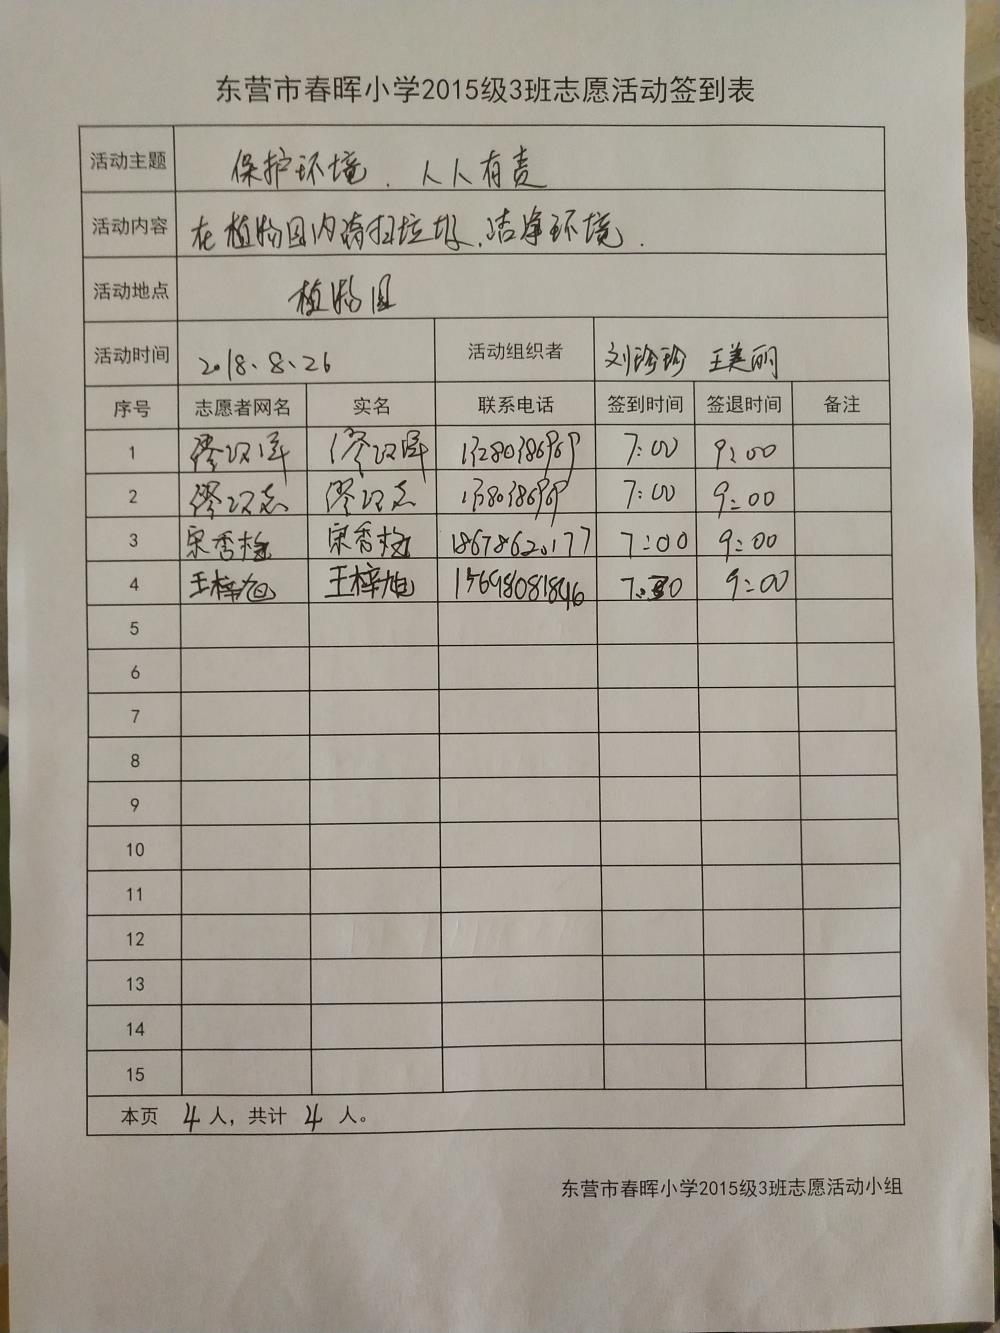 东营市春晖小学2015级3班志愿活动签到表
活动主题 保护环境、人人有责
活动内容 在植物园内清扫垃圾、洁净环境.
活动地点 植物园
活动时间 2018、8、26 活动组织者 刘珍珍 王美丽
序号 志愿者网名 实名 联系电话 签到时间 签退时间 备注
1 7:00 9:00
2 7:00 9:00
3 18678620177 7:00 9:00
4 王梓旭 王梓旭 15698081846 9:00
5
6
7
8
9
10
11
12
13
14
15
本页 4 人，共计 4 人。
东营市春晖小学2015级3班志愿活动小组